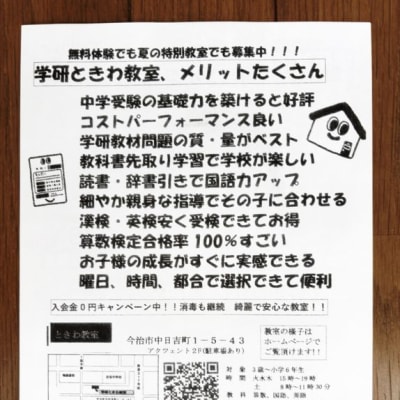 無料体験でも夏の特別教室でも募集中！！！
学研ときわ教室、メリットたくさん
中学受験の基礎力を築けると好評
コストパーフォーマンス良い
学研教材問題の質・量がベスト
教科書先取り学習で学校が楽しい
読書・辞書引きで国語力アップ
細やか親身な指導でその子に合わせる
漢検・英検安く受検できてお得
算数検定合格率100％すごい
お子様の成長がすぐに実感できる
曜日、時間、都合で選択できて便利
入会金０円キャンペーン中！！消毒も継続　綺麗で安心な教室！！
ときわ教室
今治市中日吉町１－５－４３
アクフェント２F(駐車場あり)
教室の様子は
ホームページで
ご覧頂けます！！
対象　３歳～小学６年生
時間　火水木　15時～19時
土　8時～11時30分
教科　算数、国語、英語